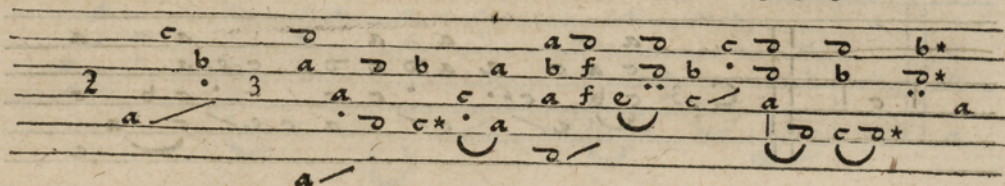 c d a d d c d d b*
b a d b a b f d b d b d*
2 3 a c a f e c a a
a d c* a d c d*
d
a